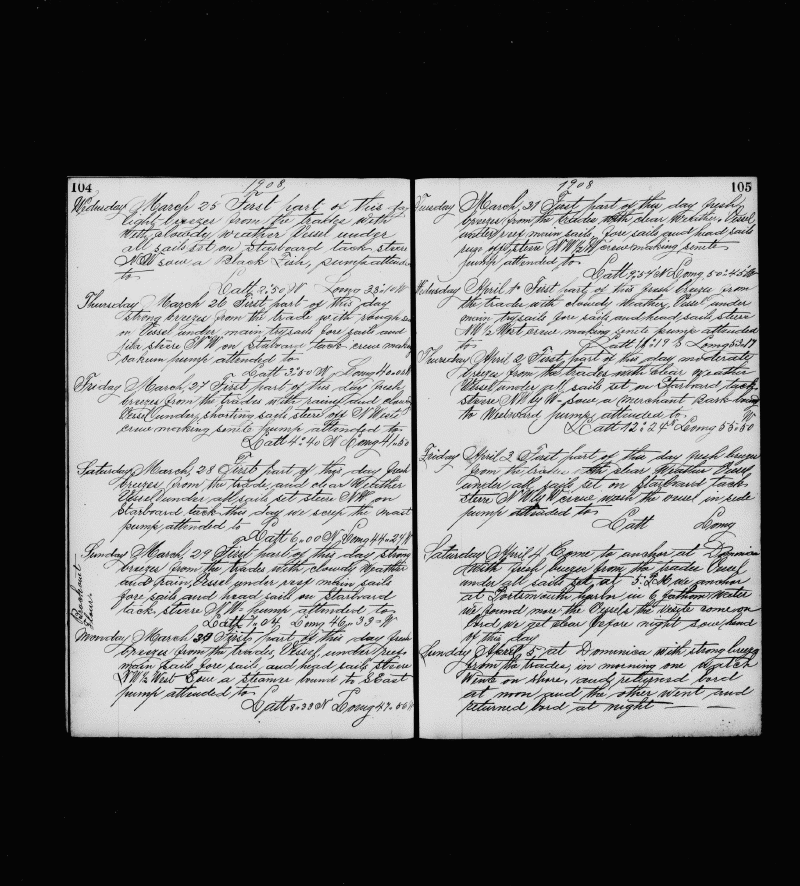 104
1908
Wednesday March 25 First part of this day
light breezes from the trades with
with cloudy weather Vessel under
all sails set on Starboard tack steere
N W saw a Black Fish, pump attended
to
Latt 2:50 N Long
Thursday March 26 First part of this day
strong breezes from the trade with rough sea
on Vessel under main trysails fore sails and
jibs steere N W on staboard tack crew making
oakum pump attended to
Latt 3:50 N Long
Friday March 27 First part of this day fresh
breezes from the trades with rain and cloudy
Vessel under shorting sails steer off N West
crew making senite pump attended to
Latt 4:40 N Long 41:50
Saturday March, 28 First part of this day fresh
breezes from the trade, and clear Wether
Vessel under all sails set steere N W on
Starboard tack this day we scrap the mast
pump attended to
Latt 6:00 N Long 44:24 W
Sunday March, 29 First part of this day strong
breezes from the trades with cloudy Weather
and rain, Vessel under reef main sails
fore sails and head sails on Starboard
tack steere N W pump attended to
Latt Long 46:33 W
Monday March 30 First part of this day fresh
breezes from the trades, Vessel under reef
main sails fore sails and head sails steere
N W ½ West Saw a steamer bound to S East
pump attended to
Latt 8:33 N Long 47:56 W
Brokout
Flour.
105
1908
Tuesday March, 31 First part of this day fresh
breezes from the trades, with clear Wether, Vessel
under reef main sails, fore sails and head sails
steere N W ½ W crew making senite
pump attended to
Latt 9:54 N Long, 50:45 W
Wednesday April 1 First part of this fresh breezes from
the trades with cloudy Weather, Vessel under
main trysails fore sails and head sails steere
N W ½ West crew making senite pump attended
to
Latt 11:19 Long 53:17
Thursday April 2 First part of this day moderate
breezes from the trades with clear Weather
Vessel under all sails set on Starboard tack
steere N W by W saw a merchant Bark bound
to Westward pump attended to
Latt 12:24 Long 55:50 W
Friday April 3 First part of this day fresh breezes
from the trades the clear Weather Vessel
under all sails set on Starboard tack
steere N W by W crew wash the vessel in side
pump attended to
Latt Long
Saturday April 4 Come to anchor at Dominica
with fresh breezes from the trades Vessel
under all sails set at 5. P.M. we anchor
at Portsmouth in 6 fathom Water
we found more the Vessels the come on
bord we get ebar before night
of this day
Sunday April 5 at Dominica with strong breeze
from the trades, in morning one Watch
Wente on shore, and returned bord
at noon and the other went and
returned bord at night